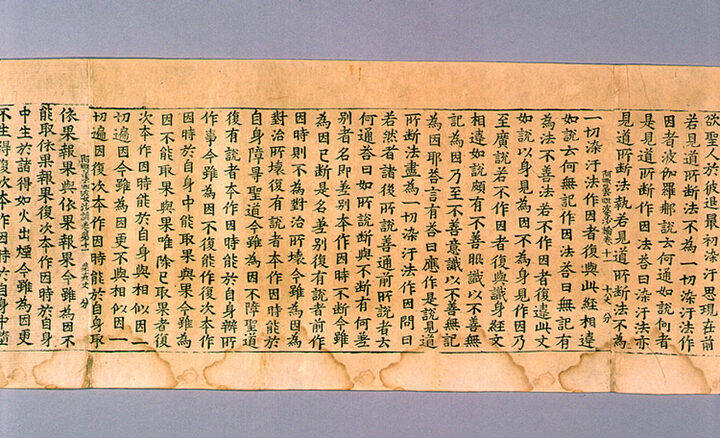 欲聖人於彼追最初染汙思現在前
若見道所断法不為一切染汙法作
因者波伽羅那說去何通如說何者
是見道所断作因法荅曰染汙法亦
見道所断法執若見道所断法不為
阿毗曇毗婆沙論卷十一 十六丈 分
一切染汙法作因者復與此經相違
如說去何無記作因法荅曰無記有
為法不善法若不作因者復違此文
如說以身見為因不為身見作因乃
至廣說若不作因者復與識身經文
相違如說頗有不善眼識以不善無記
記為因乃至不善意識以不善無記
為因耶荅言有荅曰應作是說見道
所断法盡為一切染汙法作因問曰
若然者諸後所說善通前所說者去
何通荅曰如所說断與不断有何差
別者名即差別本作因時不断今雖
為因已断是名差別復有說者前作
因時則不為對治所壞今雖為因為
對治所壞復有說者本作因時能於
自身障㝵聖道今雖為因不障聖道
復有說者本作因時能於自身辦所
作事今雖為因不復能作復次本作
因時於自身中能取果與果今雖為
因不能取果與果唯除已取果者復
次本作因時能於自身與相似因一
切遍因今雖為因更不與相似因一
切遍因復次本作因時能於自身取
依果報果與依果報果今雖為因不
能取依果報果復次本作因時於自身
中生於諸得如火出煙今雖為因更
不生得復次本作因時於自身中